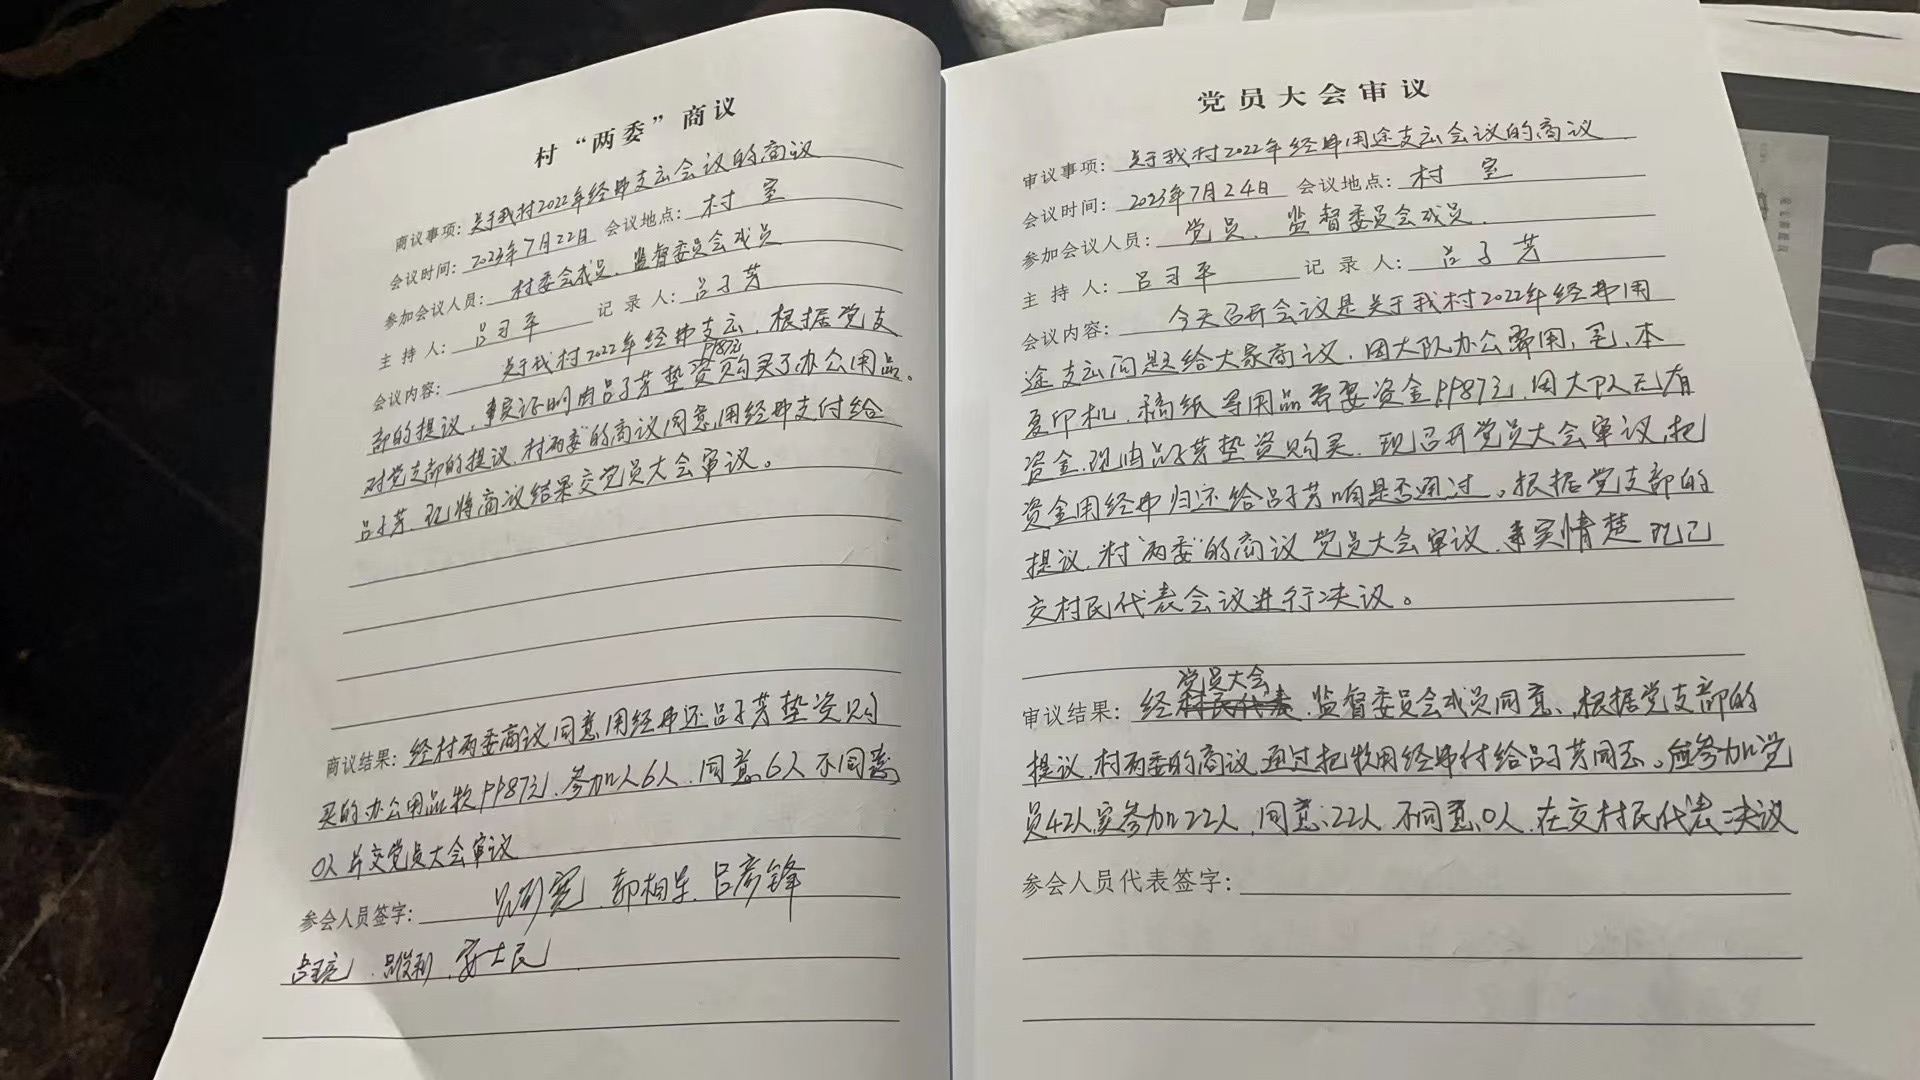 村“两委”商议
商议事项：关于我村2022年经费支云会议的商议
会议时间：2023年7月22日 会议地点：村 室
参加会议人员：村委会成员、监督委员会成员
主 持 人：吕习平 记 录 人：吕子芳
会议内容：关于我村2022年经费支云，根据党支
部的提议，事实证明由吕子芳垫资购买了办公用品。
对党支部的提议，村两委的商议同意用经费支付给
吕子芳，现将商议结果交党员大会审议。
商议结果：经村两委商议同意用经费还吕子芳垫资购
买的办公用品款1187元，参加人6人，同意6人不同意
0人并交党员大会审议
参会人员签字：郭相呈、吕彦锋
党员大会审议
审议事项：关于我村2022年经费用途支云会议的商议
会议时间：2023年7月24日 会议地点：村 室
参加会议人员：党员、监督委员会成员
主 持 人：吕习平 记 录 人：吕子芳
会议内容：今天召开会议是关于我村2022年经费用
途支云问题给大家商议，因大队办公费用，笔、本
复印机、稿纸等用品需要资金1187元，因大队无有
资金，现由吕子芳垫资购买，现召开党员大会审议，把
资金用经费归还给吕子芳响是否通过。根据党支部的
提议，村“两委”的商议党员大会审议，事实情楚现已
交村民代表会议进行决议。
党员大会
审议结果：经村民代表，监督委员会成员同意，根据党支部的
提议，村两委的商议通过把款用经费付给吕子芳同志。应参加党
员42人实参加22人，同意：22人，不同意0人，在交村民代表决议
参会人员代表签字：